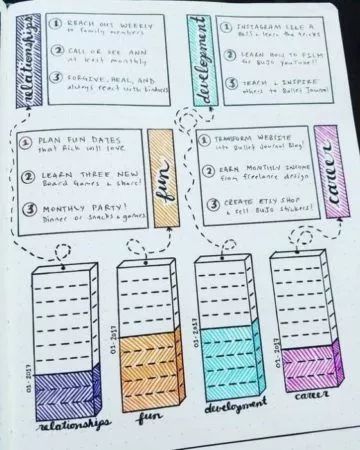 relationships
1 REACH OUT WEEKLY
to family members
2 CALL OR SEE ANN
at least monthly
3 FORGIVE, HEAL, AND
always react with kindness
development
1 INSTAGRAM LIKE A
BOSS & learn the tricks
2 LEARN HOW TO FILM
for BUJO YouTube!!
3 TEACH & INSPIRE
others to Bullet Journal
1 PLAN FUN DATES
that Rich will love
2 LEARN THREE NEW
Board Games & share!
3 MONTHLY PARTY!
Dinner or snacks & games
fun
1 TRANSFORM WEBSITE
into Bullet Journal Blog!
2 EARN MONTHLY INCOME
from freelance design
3 CREATE ETSY SHOP
& sell BUJO stickers!
career
01-2017
relationships
01-2017
fun
01-2017
development
01-2017
career